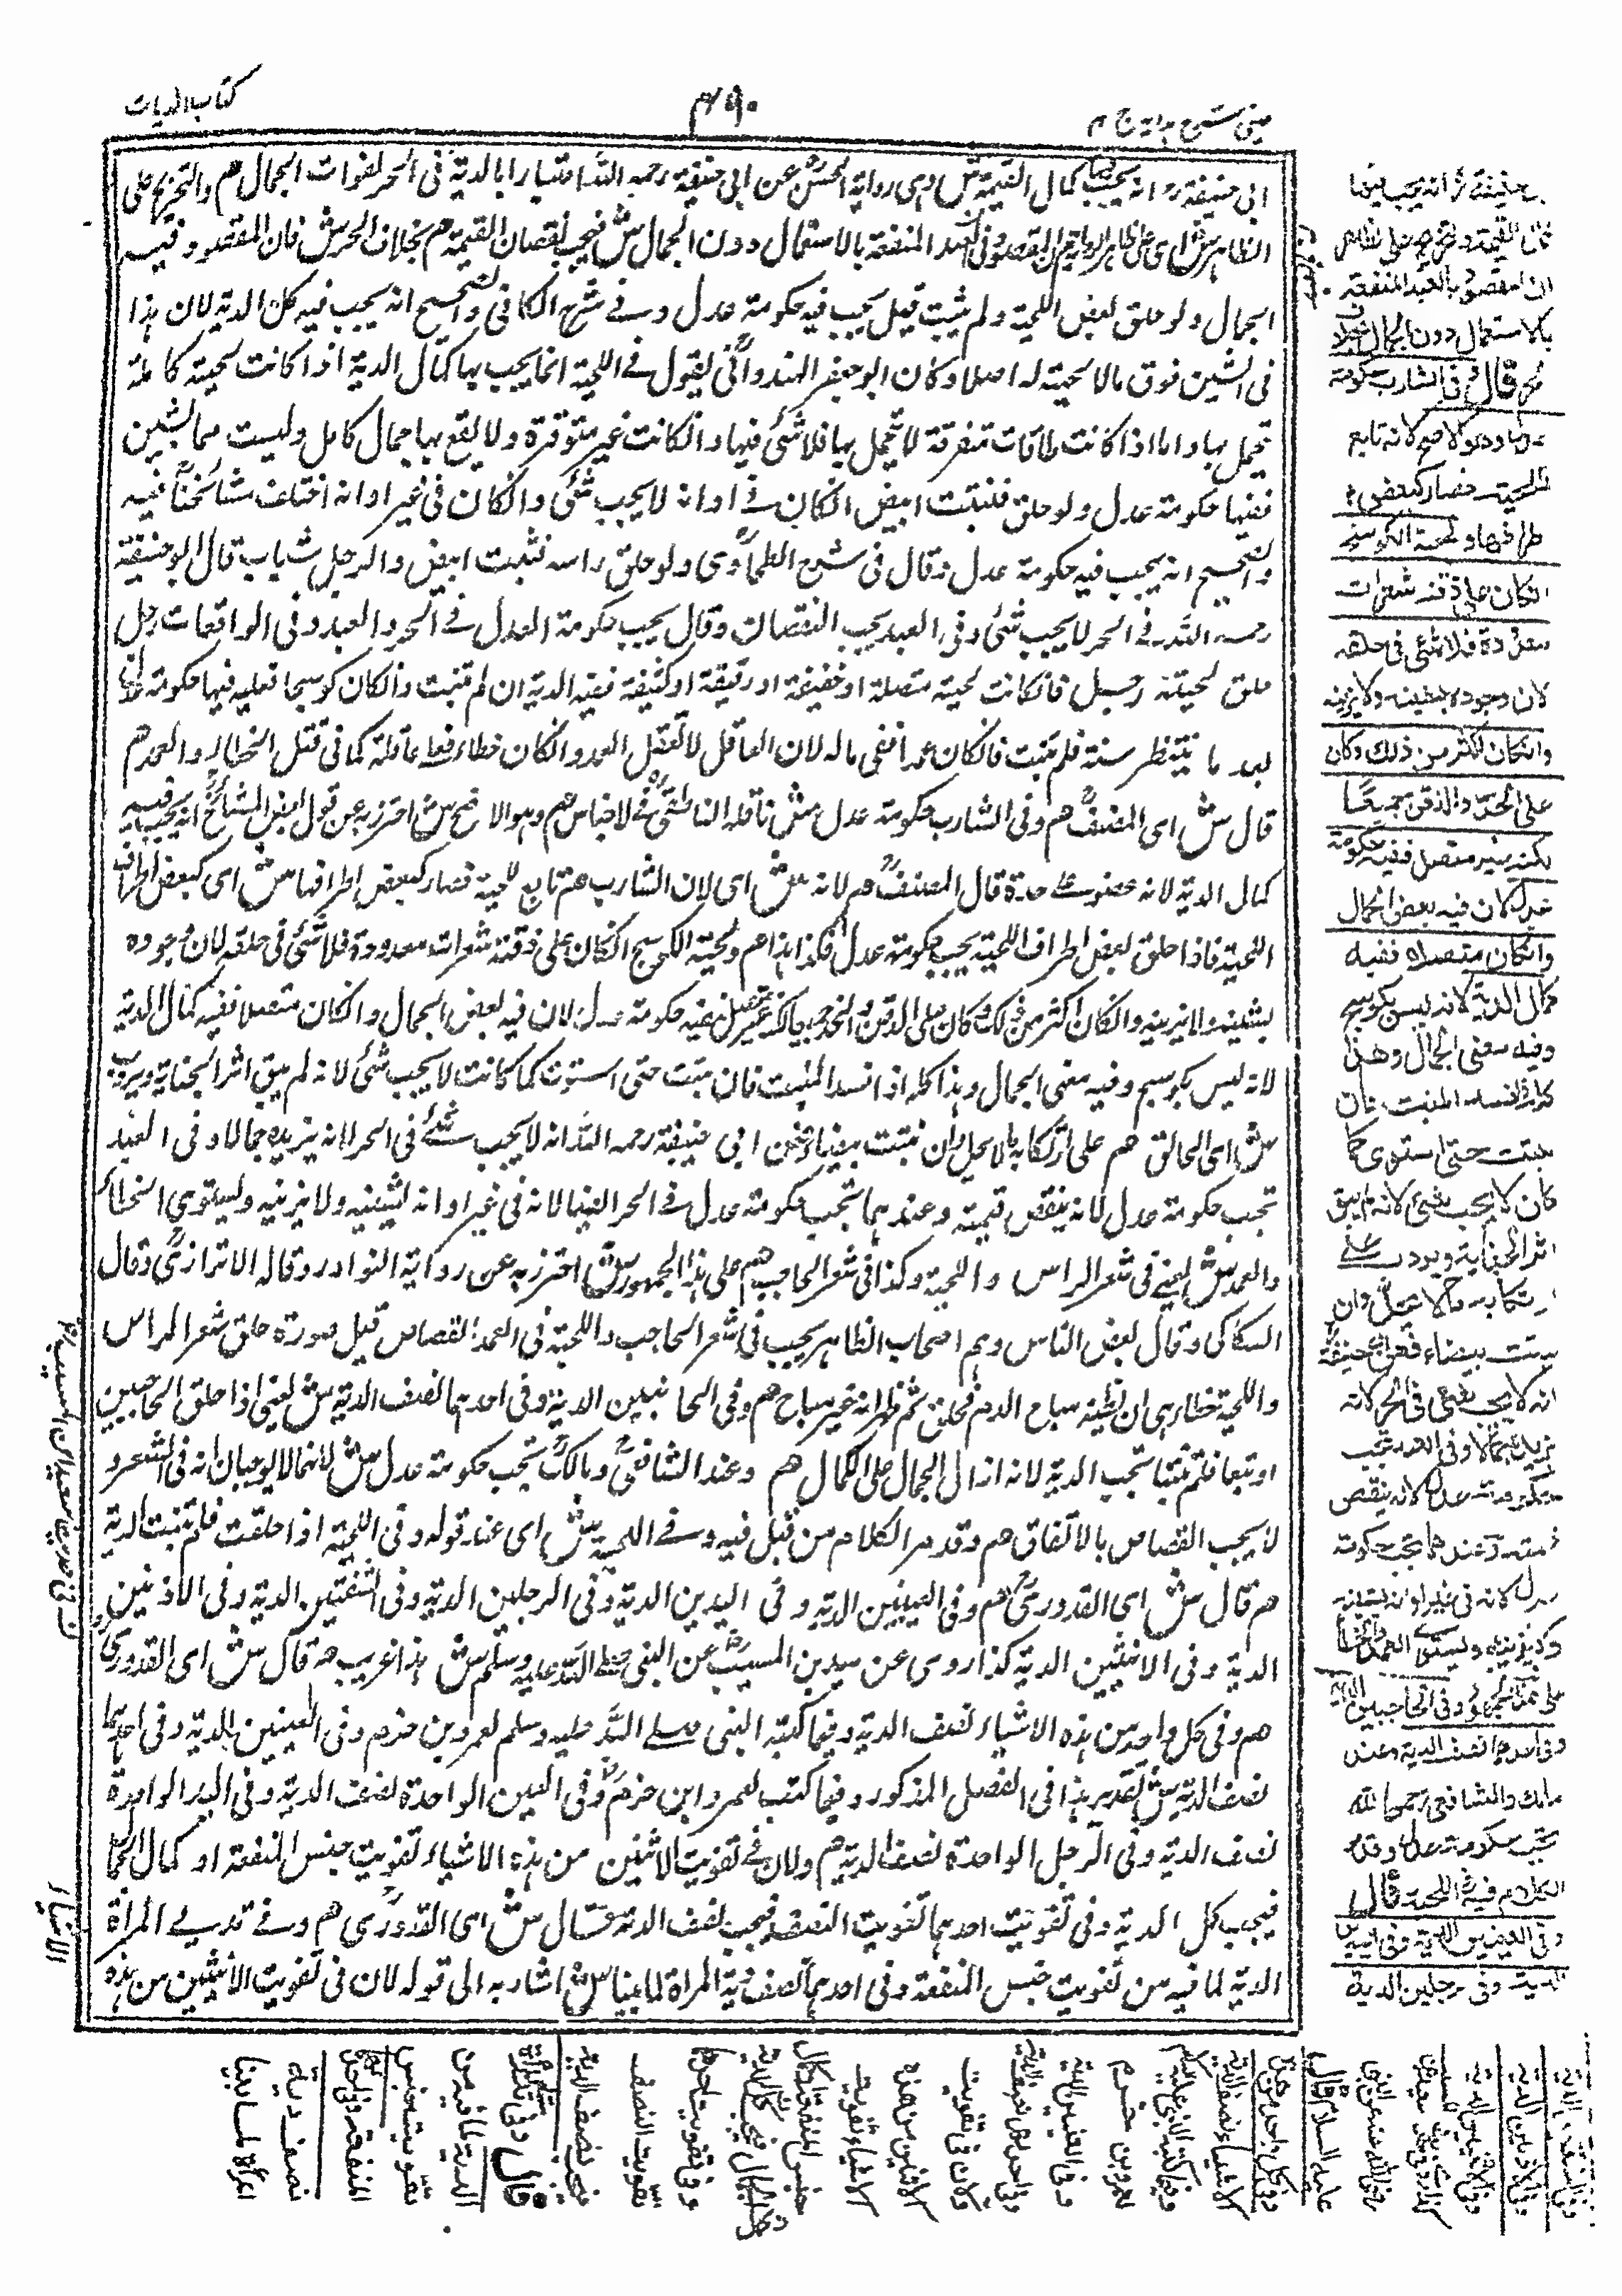 كتاب الديات
٤٩٠
عينی شرح ہدايہ ج ٤
ابی حنيفة رح انه يجب فيها كمال القيمة ش وهی رواية الحسن عن ابی حنيفة رحمه الله اعتبارا بالدية فی الحر لفوات الجمال هم والتخريج علی
الظاهر ش ای علی ظاهر الرواية هم ان المقصود فی العبد المنفعة بالاستعمال دون الجمال ش فيجب نقصان القيمة هم بخلاف الحر ش فان المقصود فيه
الجمال ولو حلق بعض اللحية ولم ينبت قيل يجب فيه حكومة عدل وفی شرح الكافی والصحيح انه يجب فيه كل الدية لان هذا
فی الشين فوق مالا لحية له اصلا وكان ابو جعفر الهندوانی يقول فی اللحية انما يجب بها كمال الدية اذا كانت لحية كاملة
تجمل بها واما اذا كانت طاقات متفرقة لا تجمل بها فلا شئ فيها وان كانت غير متوفرة ولا يقع بها جمال كامل وليست مما يشين
ففيها حكومة عدل ولو حلق فنبتت ابيض ان كان فی اوانه لا يجب شئ وان كان فی غير اوانه اختلف مشائخنا فيه
والصحيح انه يجب فيه حكومة عدل وقال فی شرح الطحاوی ولو حلق راسه فنبت ابيض والرجل شاب قال ابو حنيفة
رحمه الله فی الحر لا يجب شئ وفی العبد يجب النقصان وقال يجب حكومة العدل فی الحر والعبد وفی الواقعات رجل
حلق لحية رجل فان كانت لحية متصلة او خفيفة او رقيقة او كثيفة ففيه الدية ان لم تنبت وان كان كوسجا فعليه فيها حكومة عدل
بعد ما ينتظر سنة فلم تنبت فان كان عمدا ففی ماله لان العاقل لا تعقل العمد وان كان خطاء فعلی عاقلته كما فی قتل الخطاء والعمد هم
قال ش ای المصنف هم وفی الشارب حكومة عدل ش ناقله الناطفی فی الاجناس هم وهو الاصح ش احترز به عن قول بعض المشائخ انه يجب فيه
كمال الدية لانه عضو علی حدة قال المصنف هم لانه ش ای لان الشارب هم تابع للحية فصار كبعض اطرافها ش ای كبعض اطراف
اللحية فاذا حلق بعض اطراف اللحية يجب حكومة عدل فكذا هذا هم ولحية الكوسج ان كان علی ذقنه شعرات معدودة فلا شئ فی حلقه لان وجوده
يشينه ولا يزينه وان كان اكثر من ذلك وكان علی الذقن والخد جميعا لكنه غير متصل ففيه حكومة عدل لان فيه بعض الجمال وان كان متصلا ففيه كمال الدية
لانه ليس بكوسج وفيه معنی الجمال وهذا كله اذا افسد المنبت فان نبتت حتی استوت كما كانت لا يجب شئ لانه لم يبق اثر الجناية ويؤدب
ش ای الحالق هم علی ارتكابه مالا يحل وان نبتت بيضا فعن ابی حنيفة رحمه الله انه لا يجب شئ فی الحر لانه يزيده جمالا وفی العبد
تجب حكومة عدل لانه ينقص قيمته وعندهما تجب حكومة عدل فی الحر ايضا لانه فی غير اوانه يشينه ولا يزينه ويستوی الخطاء
والعمد ش يعنی فی شعر الراس واللحية وكذا فی شعر الحاجب هم علی هذا الجمهور ش احترز به عن رواية النوادر وقاله الاترازی وقال
السكاكی وقال بعض الناس وهم اصحاب الظاهر يجب فی شعر الحاجب واللحية فی العمد القصاص قيل صورة حلق شعر الراس
واللحية خطا هی ان يظنه مباح الدم فحلق ثم ظهر انه غير مباح هم وفی الحاجبين الدية وفی احدهما نصف الدية ش يعنی اذا حلق الحاجبين
او نتفا فلم ينبتا تجب الدية لانه ازال الجمال علی الكمال هم وعند الشافعی ومالك تجب حكومة عدل ش لانهما لا يوجبان انه فی الشعر و
لا يجب القصاص بالاتفاق هم وقد مر الكلام من قبل فيه وفی اللحية ش ای عند قوله وفی اللحية اذا حلقت فلم تنبت الدية
هم قال ش ای القدوری هم وفی العينين الدية وفی اليدين الدية وفی الرجلين الدية وفی الشفتين الدية وفی الاذنين
الدية وفی الانثيين الدية كذا روی عن سعيد بن المسيب عن النبی صلی الله عليه وسلم ش هذا غريب هم قال ش ای القدوری
هم وفی كل واحد من هذه الاشياء نصف الدية وفيما كتبه النبی صلی الله عليه وسلم لعمرو بن حزم وفی العينين الدية وفی احدهما
نصف الدية ش تقدير هذا فی الفصل المذكور وفيما كتب لعمرو ابن حزم وفی العين الواحدة نصف الدية وفی اليد الواحدة
نصف الدية وفی الرجل الواحدة نصف الدية هم ولان فی تفويت الاثنين من هذه الاشياء تفويت جنس المنفعة او كمال الجمال
فيجب كل الدية وفی تفويت احدهما تفويت النصف فيجب نصف الدية قال ش ای القدوری هم وفی ثديی المراة
الدية لما فيه من تفويت جنس المنفعة وفی احدهما نصف دية المراة لما بينا ش اشار به الی قوله لان فی تفويت الاثنين من هذه
الاشياء
حنيفة رح انه يجب فيها
كمال القيمة والتخريج علی الظاهر
ان المقصود بالعبد المنفعة
بالاستعمال دون الجمال بخلاف
الحر قال وفی الشارب حكومة
عدل وهو الاصح لانه تابع
للحية فصار كبعض
اطرافها ولحية الكوسج
ان كان علی ذقنه شعرات
معدودة فلا شئ فی حلقه
لان وجوده يشينه ولا يزينه
وان كان اكثر من ذلك وكان
علی الخد والذقن جميعا
لكنه غير متصل ففيه حكومة
عدل لان فيه بعض الجمال
وان كان متصلا ففيه
كمال الدية لانه ليس بكوسج
وفيه معنی الجمال وهذا
كله اذا فسد المنبت فان
نبتت حتی استوی كما
كان لا يجب شئ لانه لم يبق
اثر الجناية ويؤدب علی
ارتكابه مالا يحل وان
نبتت بيضاء فعن ابی حنيفة
انه لا يجب شئ فی الحر لانه
يزيده جمالا وفی العبد تجب
حكومة عدل لانه ينقص
قيمته وعندهما تجب حكومة
عدل لانه فی غير اوانه يشينه
ولا يزينه ويستوی العمد والخطأ
علی هذا الجمهور وفی الحاجبين الدية
وفی احدهما نصف الدية وعند
مالك والشافعی رحمهما الله
تجب حكومة عدل وقد مر
الكلام فيه فی اللحية قال
وفی العينين الدية وفی اليدين
الدية وفی الرجلين الدية
وفی الشفتين الدية
وفی الاذنين الدية
وفی الانثيين الدية
رضی الله عنه عن النبی
عليه السلام قال
وفی كل واحد من هذه
الاشياء نصف الدية
وفيما كتبه النبی عليه السلام
لعمرو بن حزم
وفی العينين الدية
وفی احدهما نصف الدية
ولان فی تفويت
الاثنين من هذه
الاشياء تفويت
جنس المنفعة او كمال
الجمال فيجب كل الدية
وفی تفويت احدهما
تفويت النصف
فيجب نصف الدية
قال وفی ثديی المرأة
الدية لما فيه من
تفويت جنس
المنفعة وفی احدهما
نصف دية
المرأة لما بينا